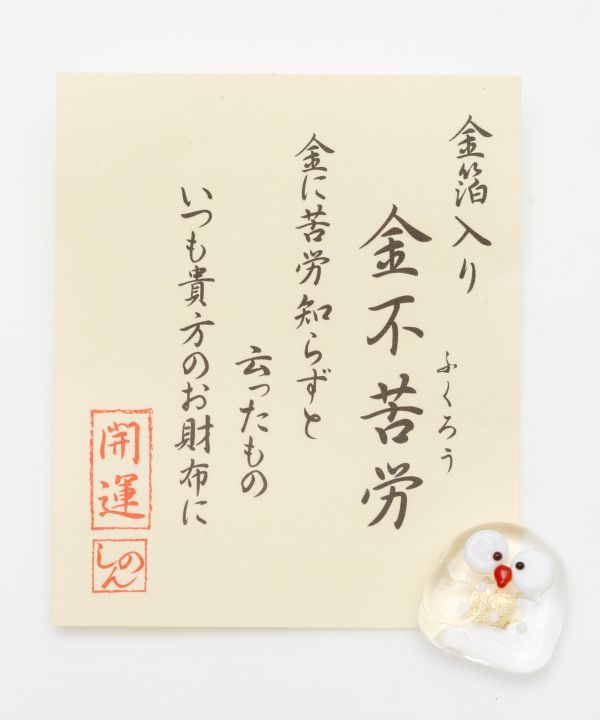 金箔入り
金不苦労
ふくろう
金に苦労知らずと
云ったもの
いつも貴方のお財布に
開運
しのん